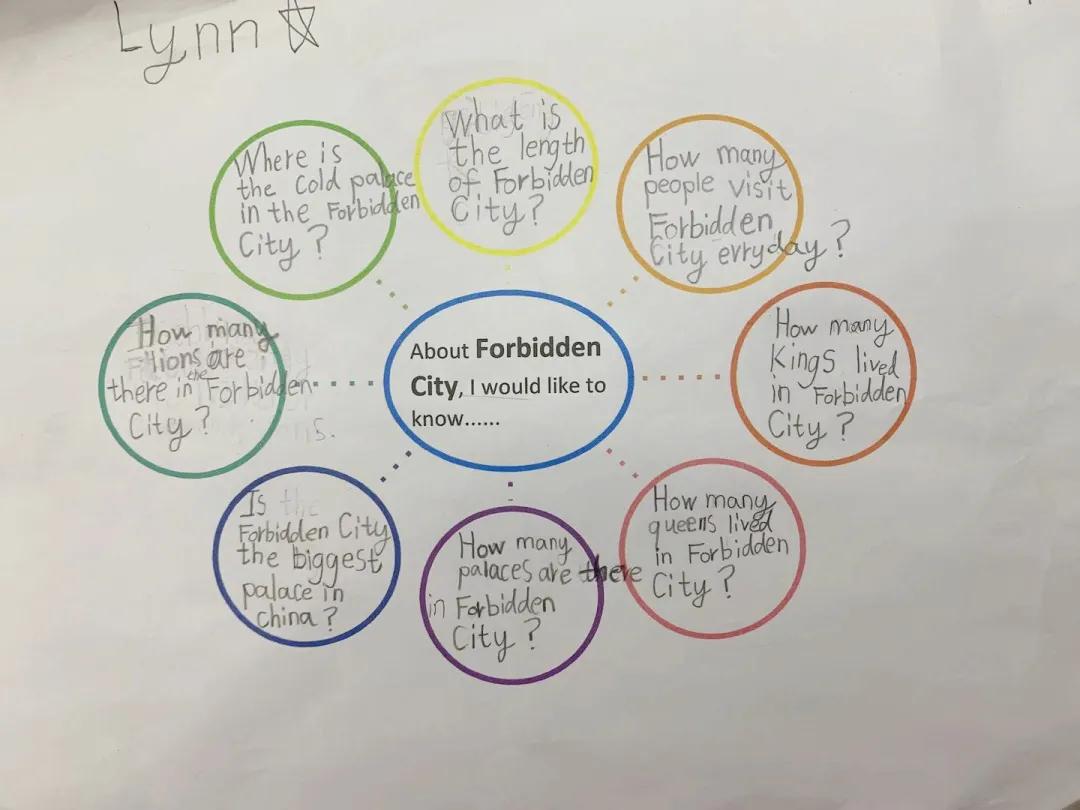 Lynn
What is
the length
of Forbidden
City?
How many
people visit
Forbidden
City erryday?
How many
Kings lived
in Forbidden
City?
How many
queens lived
in Forbidden
City?
How many
palaces are there
in Forbidden
City?
Is the
Forbidden City
the biggest
palace in
china?
How many
lions are
there in the Forbidden
City?
Where is
the Cold palace
in the Forbidden
City?
About Forbidden
City, I would like to
know......